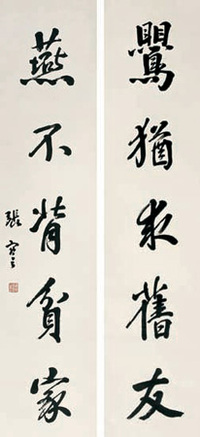 鸎猶求舊友
燕不背貧家
張謇